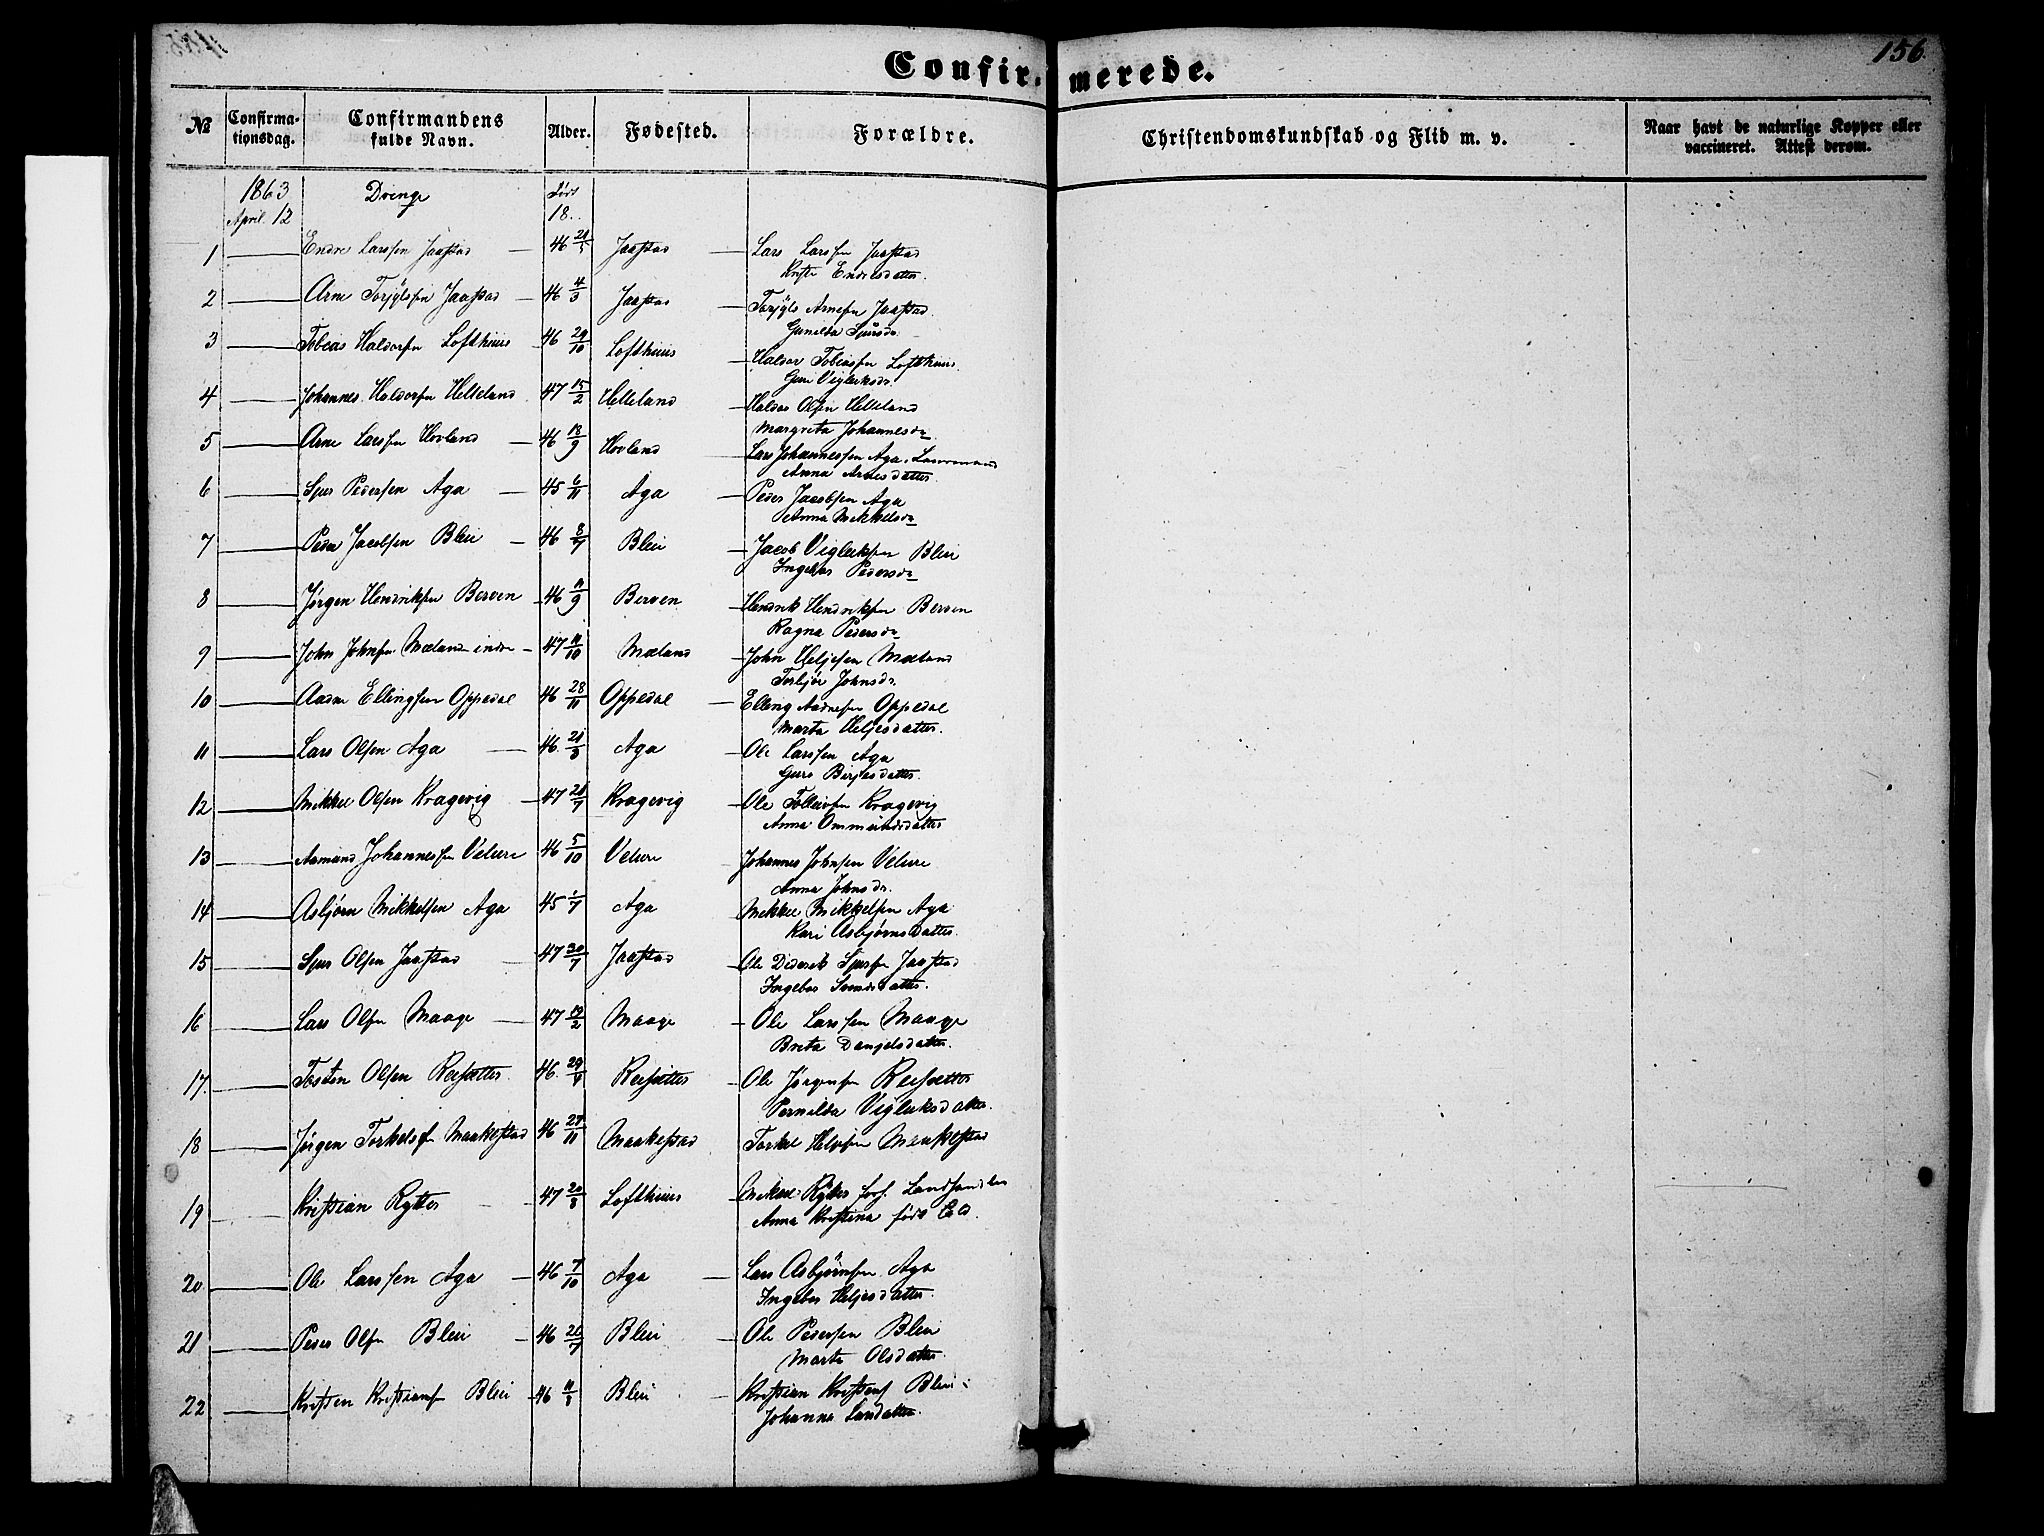 156
Confirmerede.
№ Confirmationsdag. Confirmandens fulde Navn. Alder. Fødested. Forældre. Christendomskundskab og Flid m. v. Naar havt de naturlige Kopper eller vaccineret. Attest derom.
1863 Drenge født
April. 12 18..
1 Endre Larssen Jaastad 46 21/5 Jaastad Lars Larssen Jaastad
Endresdatter.
2 Arne Torjylssen Jaastad 46 4/3 Jaastad Torjyls Arnesen Jaastad
Gunilda Sjursdr
3 Tobias Haldorsen Lofthuus 46 29/10 Lofthuus Haldor Tobiassen Lofthuus.
Guri Viglecksdr.
4 Johannes Haldorsen Helleland 47 15/2 Helleland Haldor Olsen Helleland
Margreta Johannesdr
5 Arne Larssen Hovland 46 18/9 Hovland Lars Johannessen Aga.
Anna Arnesdatter
6 Sjur Pedersen Aga 45 6/11 Aga Peder Jacobsen Aga
Anna Mikkelsdr
7 Peder Jacobsen Bleie 46 8/7 Bleie Jacob Vigleiksen Bleie
Ingebor Pedersdr
8 Jørgen Hendriksen Berven 46 11/9 Berven Hendrik Hendriksen Berven
Ragna Pedersdr
9 John Johnsen Mæland indre 47 11/10 Mæland John Heljesen Mæland
Torbjør Johnsdr.
10 Aadne Ellingsen Oppedal 46 28/11 Oppedal Elling Aadnesen Oppedal
Marta Heljesdatter.
11 Lars Olsen Aga 46 21/3 Aga Ole Larssen Aga
Guro Birjesdatter.
12 Mikkel Olsen Kragevig 47 21/7 Kragevig Ole Tolleivsen Kragevig
Anna Ommundsdatter
13 Aamund Johannessen Velure 46 5/10 Velure Johannes Johnsen Velure
Anna Johnsdr.
14 Asbjørn Mikkelsen Aga 45 1/7 Aga Mikkel Mikkelsen Aga
Kari Asbjørnsdatter.
15 Sjur Olsen Jaastad 47 30/7 Jaastad Ole Diderik Sjursen Jaastad
Ingebor Svendsdatter.
16 Lars Olsen Maage 47 19/2 Maage Ole Larssen Maage
Breta Danjelsdatter.
17. Tosten Olsen Reisæter 46. 29/9 Reisæter Ole Jørgensen Reisæter
Pernilda Vigleiksdatter.
18 Jørgen Torkelsen Maakestad 46 27/11 Maakestad Torkel Helgesen Maakestad
19 Kristian Rytter 47 20/3 Lofthuus Mikkel Rytter forh. Landhandler
Anna Kristina født
20 Ole Larssen Aga 46 7/10 Aga Lars Asbjørnsen Aga
Ingebor Heljesdatter.
21 Peder Olsen Bleie 46 20/7 Bleie Ole Pedersen Bleie
Marta Olsdatter
22 Kristen Kristiansen Bleie 46 11/3 Bleie Kristian Kristensen Bleie
Johanna Larsdatter.